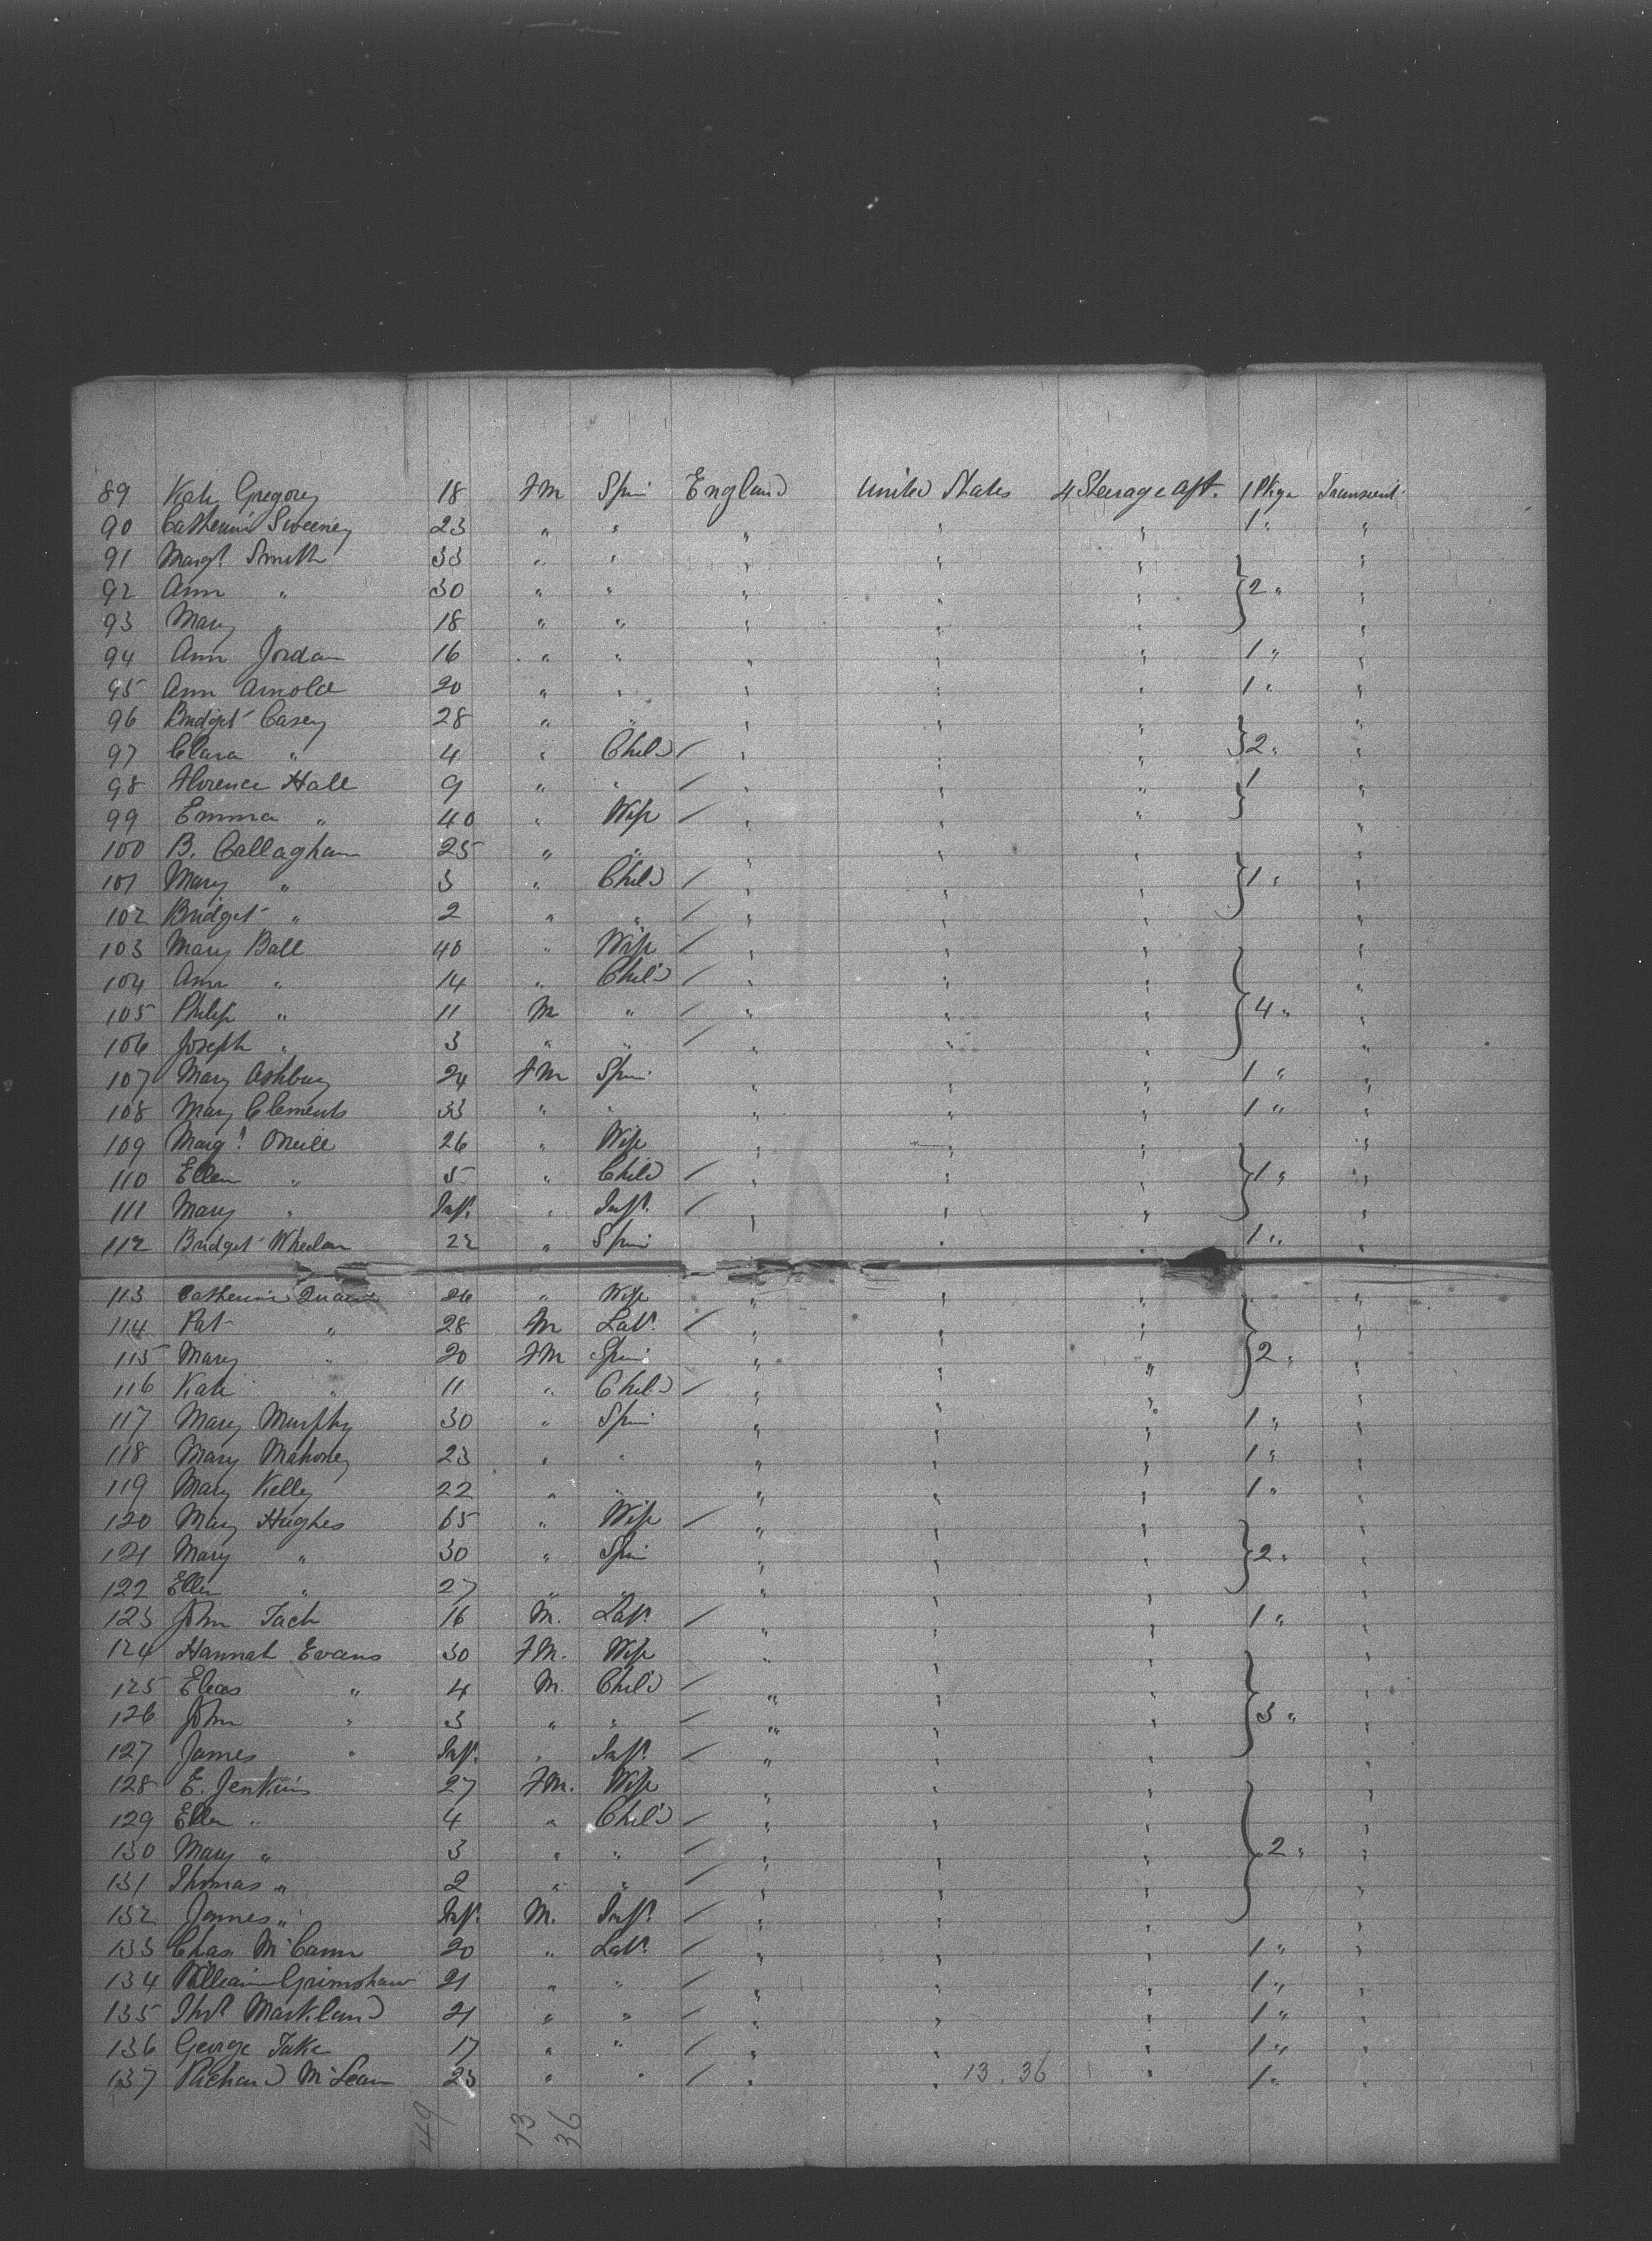 89 Kate Gregory 18 Fm Spin England United States 4 Steerage Aft. 1 Pkge Transient
90 Catherine Sweeney 23 " " " " " 1 " "
91 Margt Smith 33 " " " " " "
92 Ann " 30 " " " " " 2 " "
93 Mary " 18 " " " " " "
94 Ann Jordan 16 " " " " " 1 " "
95 Ann Arnold 20 " " " " " 1 " "
96 Bridget Casey 28 " " " " " "
97 Clara " 4 " Child / " " " 2 " "
98 Florence Hall 9 " " / " " " 1 "
99 Emma " 40 " Wife / " " " "
100 B. Callaghan 25 " " " " " "
101 Mary " 3 " Child / " " " 1 " "
102 Bridget " 2 " " / " " " "
103 Mary Ball 40 " Wife / " " " "
104 Ann " 14 " Child / " " " "
105 Philip " 11 M " / " " " 4 " "
106 Joseph " 3 " " / " " " "
107 Mary Ashbury 24 Fm Spin " " " 1 " "
108 Mary Clements 33 " " " " " 1 " "
109 Margt Oneill 26 " Wife " " " "
110 Ellen " 5 " Child / " " " 1 " "
111 Mary " Inft. " Inft. / " " " "
112 Bridget Whelan 22 " Spin " " 1 " "
113 Catherine 26 " Wife " " " "
114 Pat " 28 M Labr. / " " " "
115 Mary " 20 Fm Spin " " " 2 " "
116 Kate " 11 " Child / " " " "
117 Mary Murphy 30 " Spin " " " 1 " "
118 Mary Mahoney 23 " " " " " 1 " "
119 Mary Kelley 22 " " " " " 1 " "
120 Mary Hughes 65 " Wife / " " " "
121 Mary " 30 " Spin " " " 2 " "
122 Ellen " 27 " " " " " "
123 John Tach 16 M. Labr. / " " " 1 " "
124 Hannah Evans 30 Fm. Wife " " " "
125 Elias " 4 M. Child / " " " "
126 John " 3 " " / " " " 3 " "
127 James " Inft. " Inft. / " " " "
128 E. Jenkins 27 Fm. Wife " " " "
129 Ellen " 4 " Child / " " " "
130 Mary " 3 " " / " " " 2 " "
131 Thomas " 2 " " / " " " "
132 James " Inft. M. Inft. / " " " "
133 Chas. McCann 20 " Labr. / " " " 1 " "
134 William Grimshaw 21 " " / " " " 1 " "
135 Thos Markland 21 " " / " " " 1 " "
136 George Take 17 " " / " " " 1 " "
137 Richard McLean 23 " " / " " 13. 36 " 1 " "
49 13 36